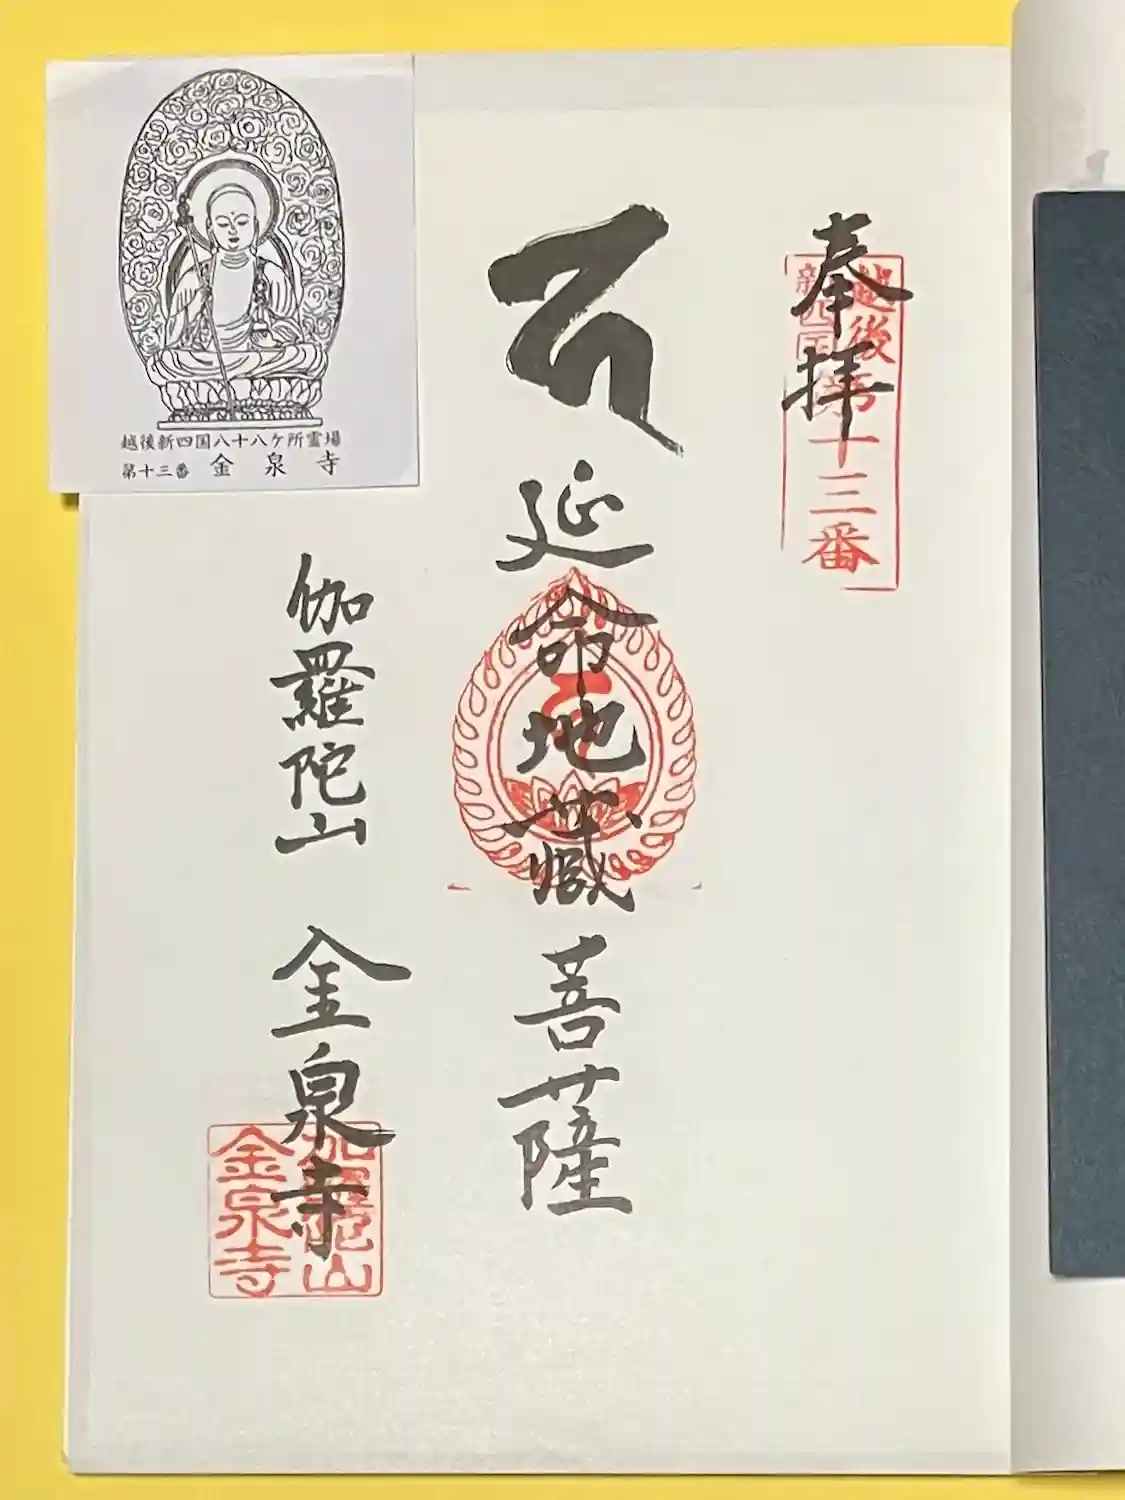 越後新四国八十八ケ所霊場
第十三番 金泉寺
奉拝
越後
新四国
第十三番
延命地蔵菩薩
伽羅陀山 金泉寺
伽羅陀山
金泉寺